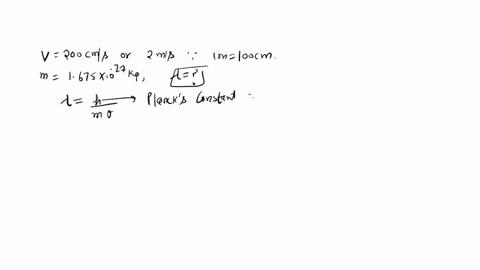 V = 200 cm/s or 2 m/s ∵ 1m = 100 cm.
m = 1.675 × 10⁻²⁷ Kg, λ = ?
λ = h/mv → Planck's Constant